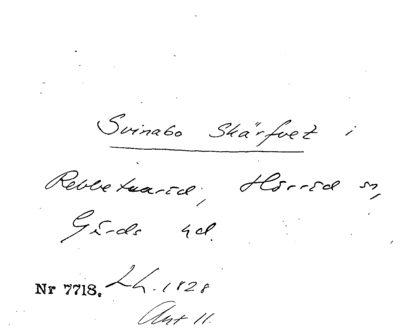 Svinabo Skärfvet i
Rebbetuarid, Hörröd sn,
Gärds hd.
Nr 7718. Lh. 1828
Akt 11.